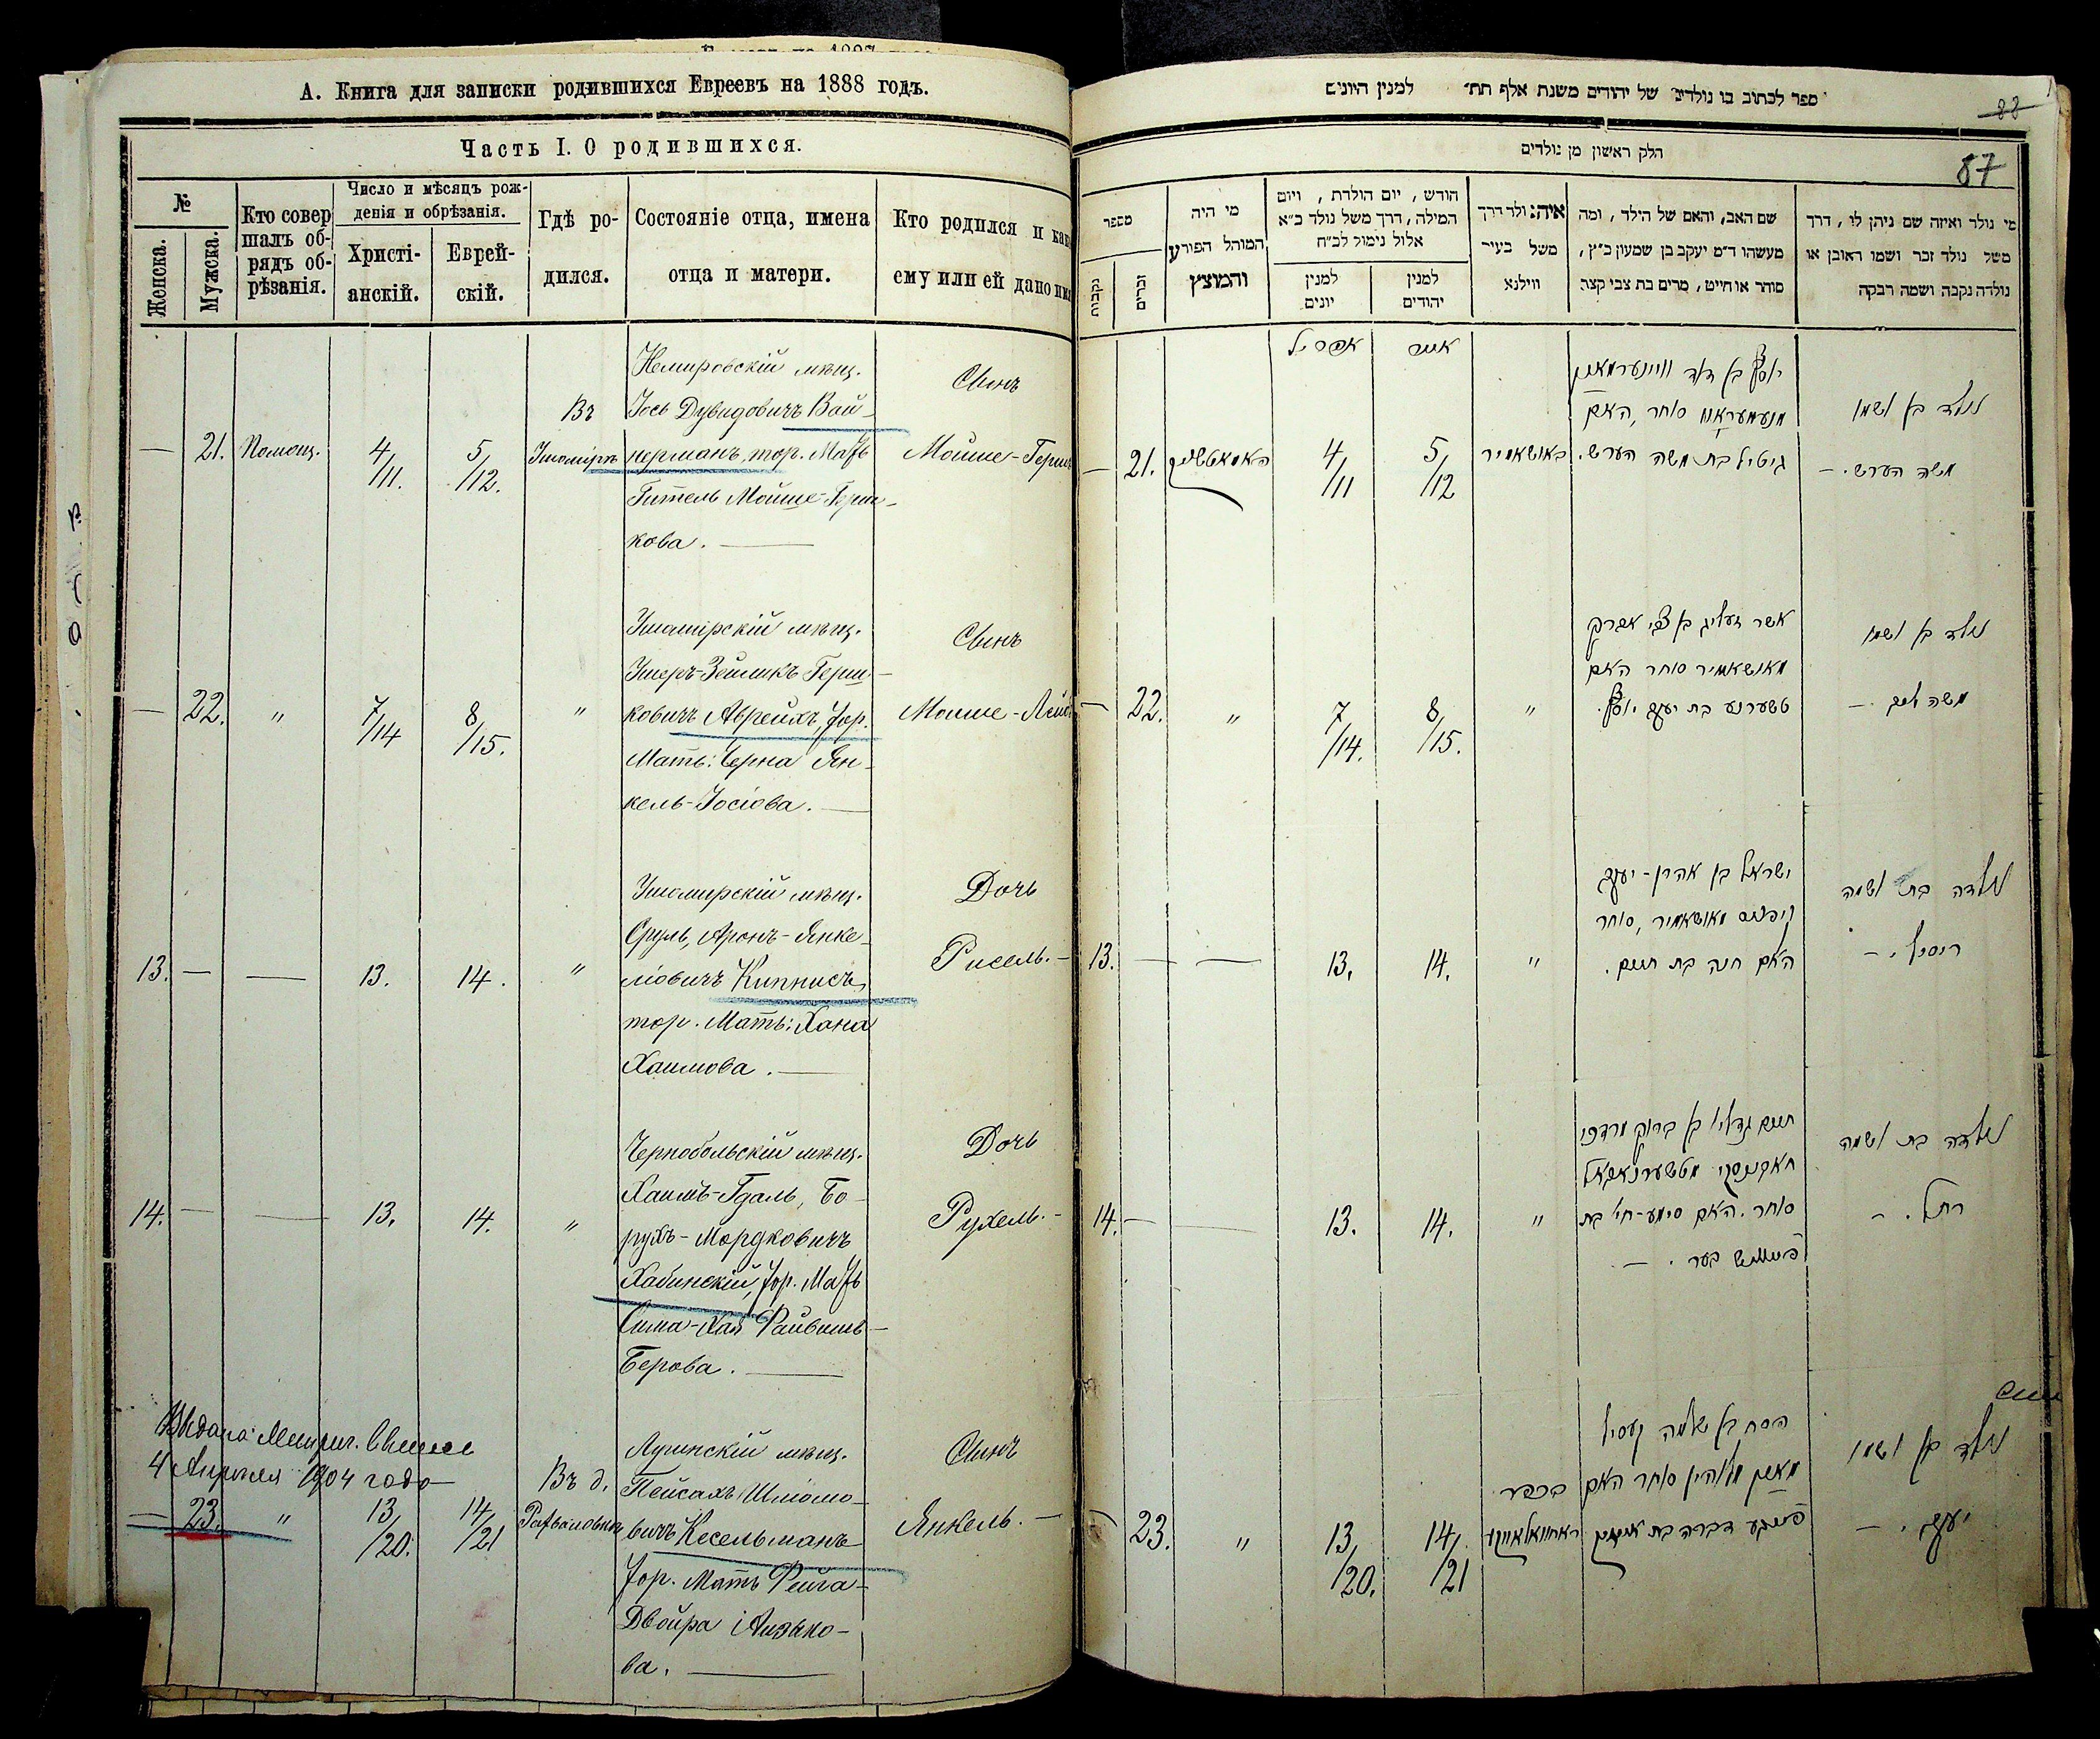 А. Книга для записки родившихся Евреевъ на 1888 годъ.
Часть I. О родившихся.
№
Женска.
Мужска.
Кто совер
шалъ об-
рядъ об-
рѣзанія.
Число и мѣсяцъ рож-
денія и обрѣзанія.
Христі-
анскій.
Еврей-
скій.
Гдѣ ро-
дился.
Состояніе отца, имена
отца и матери.
Кто родился и как
ему или ей дано им
— 21. Помощ. 4/11. 5/12.
Въ
Немировскій мѣщ.
Іось Дувидовичъ Вай-
нерманъ, тор. Мать
Гитель Мойше-Герш-
кова. —
Сынъ
Мойше-Герш
— 22. " 7/14 8/15. "
Ушомірскій мѣщ.
Ушеръ-Зейликъ Герш-
ковичъ Аврейхъ, тор.
Мать: Черна Ян-
кель-Іосіова. —
Сынъ
Мойше-Лей
13. — — 13. 14. "
Ушомирскій мѣщ.
Сруль, Аронъ-Янке-
ліовичъ Кипнисъ,
тор. Мать: Хана
Хаимова. —
Дочь
Рисель. —
14. — — 13. 14. "
Чернобольскій мѣщ.
Хаимъ-Гдаль, Бо-
рухъ-Мордковичъ
Хабинскій, тор. Мать
Сима-Хая Файвишъ-
Берова. —
Дочь
Рухель. —
4 Апрѣля 1904 года
— 23. " 13/20. 14/21
Въ д.
Лугинскій мѣщ.
Пейсахъ Шліомо-
вичъ Кесельманъ
тор. Мать Фейга-
Двойра
ва. —
Сынъ
Янкель. —
ספר לכתוב בו נולדים של יהודים משנת אלף תת״ למנין היונים
88
87
חלק ראשון מן נולדים
מספר
נקבות
זכרים
מי היה
המוהל הפורע
והמוצץ
חודש, יום הולדת, ויום
המילה, דרך משל נולד כ״א
אלול נימול לכ״ח
למנין
יונים
למנין
יהודים
איה נולד דרך
משל בעיר
ווילנא
שם האב, והאם של הילד, ומה
מעשהו ד״מ יעקב בן שמעון כ״ץ,
סוחר או חייט, מרים בת צבי קצב
מי נולד ואיזה שם ניתן לו, דרך
משל נולד זכר ושמו ראובן או
נולדה נקבה ושמה רבקה
אפריל
אייר
— 21. 4/11 5/12 באושאמיר
יוסף בן דוד וויינערמאן
סוחר, האם
גיטיל בת משה הערש.
נולד בן ושמו
משה הערש. —
— 22. " 7/14. 8/15. "
אשר זעליג בן צבי
מאושאמיר סוחר האם
טשערנע בת יעקב יוסף.
נולד בן ושמו
משה
13. — — 13. 14. "
ישראל בן אהרן-יעקב
קיפניס מאושאמיר, סוחר
האם חנה בת חיים.
נולדה בת ושמה
ריסיל. —
14. — — 13. 14. "
חיים גדליו בן ברוך מרדכי
סוחר. האם סימע-חי' בת
פייוויש בער. —
נולדה בת ושמה
רחל. —
— 23. " 13/20. 14/21
בכפר
פסח בן שלמה קעסיל
מאן סוחר האם
פייגע דבורה בת
נולד בן ושמו
יעקב. —